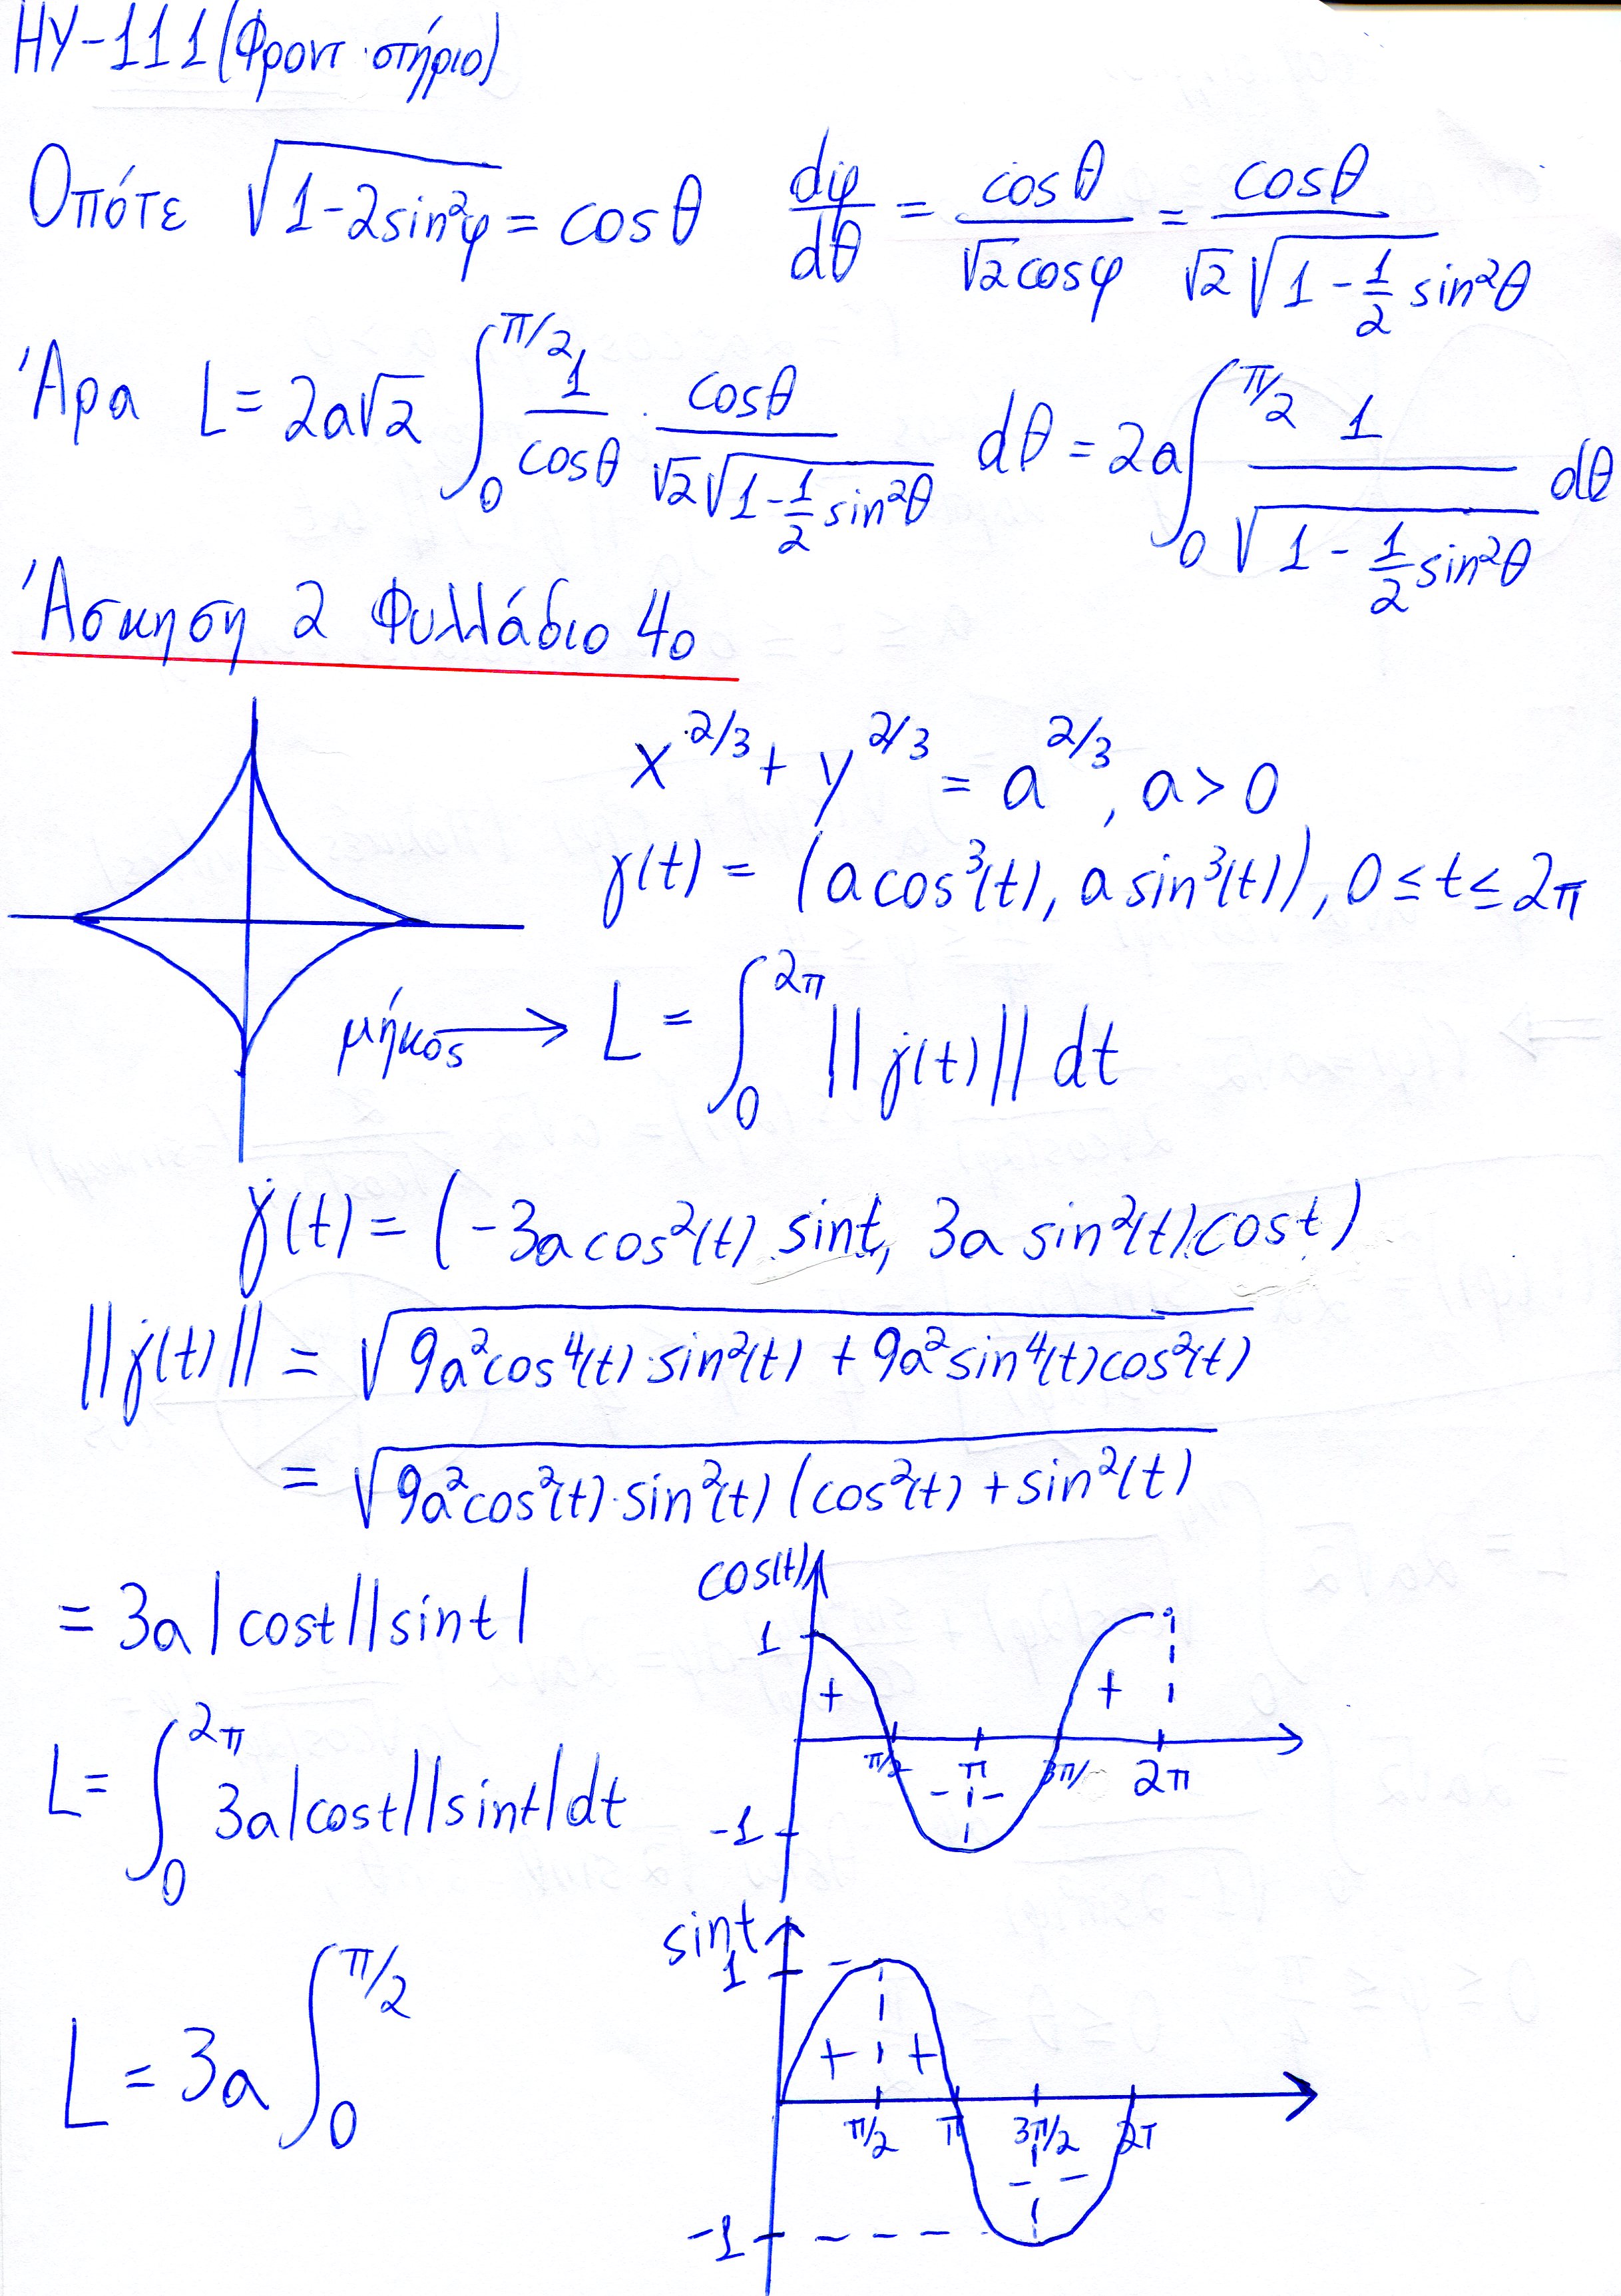 ΗΥ-111 (Φροντιστήριο)
Οπότε √(1-2sin²φ) = cosθ dφ/dθ = cosθ/(√2cosφ) = cosθ/(√2√(1-½sin²θ))
Άρα L = 2a√2 ∫₀^{π/2} 1/cosθ · cosθ/(√2√(1-½sin²θ)) dθ = 2a∫₀^{π/2} 1/√(1-½sin²θ) dθ
Άσκηση 2 Φυλλάδιο 4ο
x^{2/3} + y^{2/3} = a^{2/3}, a > 0
γ(t) = (a cos³(t), a sin³(t)), 0 ≤ t ≤ 2π
μήκος → L = ∫₀^{2π} ||γ̇(t)|| dt
γ̇(t) = (-3a cos²(t) sint, 3a sin²(t) cost)
||γ̇(t)|| = √(9a²cos⁴(t)·sin²(t) + 9a²sin⁴(t)cos²(t))
= √(9a²cos²(t)·sin²(t) (cos²(t) + sin²(t)
= 3a |cost||sint|
cos(t)
1
+ +
π/2 π 3π/ 2π
- -
-1
L = ∫₀^{2π} 3a|cost||sint|dt
sint
1
+ +
π/2 π 3π/2 2π
- -
-1
L = 3a ∫₀^{π/2}